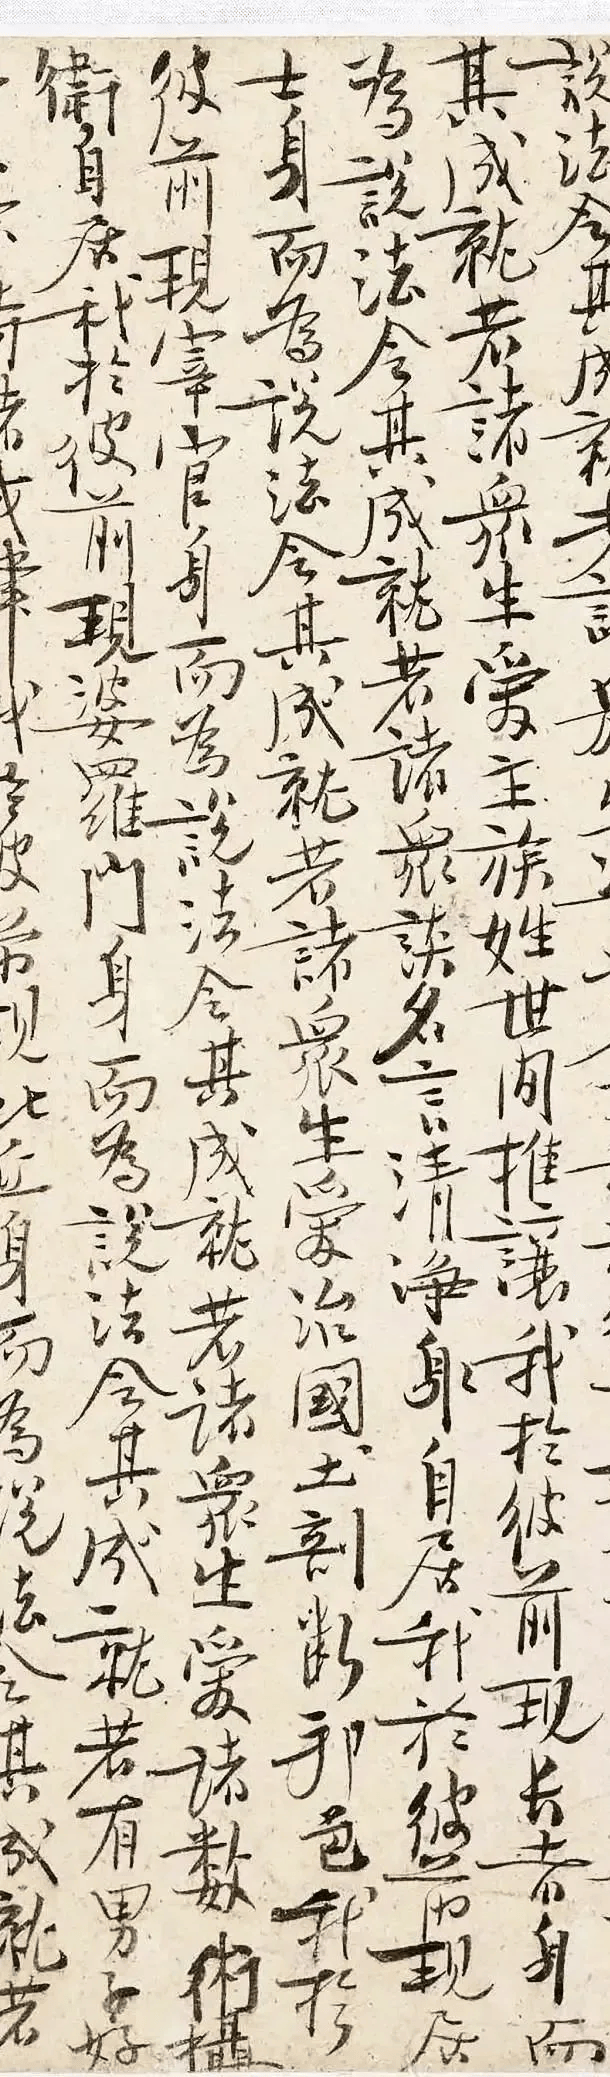 說法令其成就若諸
其成就若諸眾生愛主族姓世間推讓我於彼前現長者身而
為說法令其成就若諸眾談名言清淨身自居我於彼前現居
士身而為說法令其成就若諸眾生愛治國土剖斷邦邑我於
彼前現宰官身而為說法令其成就若諸眾生愛諸數術攝
衛自居我於彼前現婆羅門身而為說法令其成就若有男子好
持諸戒律我於彼前現比丘身而為說法令其成就若